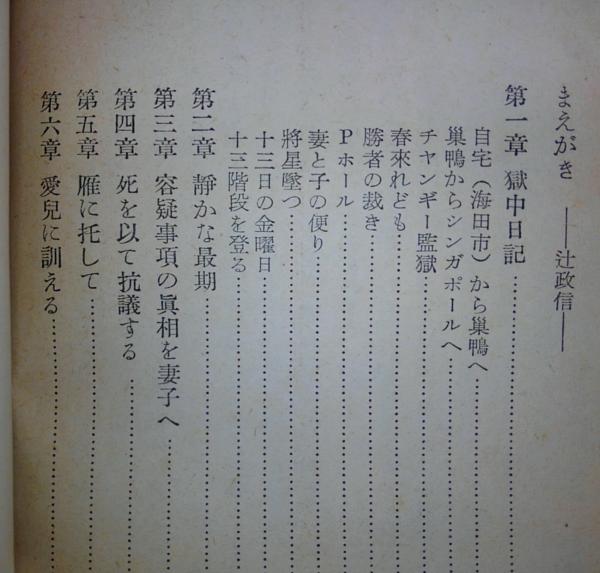 まえがき ――辻政信――
第一章 獄中日記
自宅（海田市）から巣鴨へ
巣鴨からシンガポールへ
チヤンギー監獄
春來れども
勝者の裁き
Pホール
妻と子の便り
將星墜つ
十三日の金曜日
十三階段を登る
第二章 靜かな最期
第三章 容疑事項の眞相を妻子へ
第四章 死を以て抗議する
第五章 雁に托して
第六章 愛兒に訓える